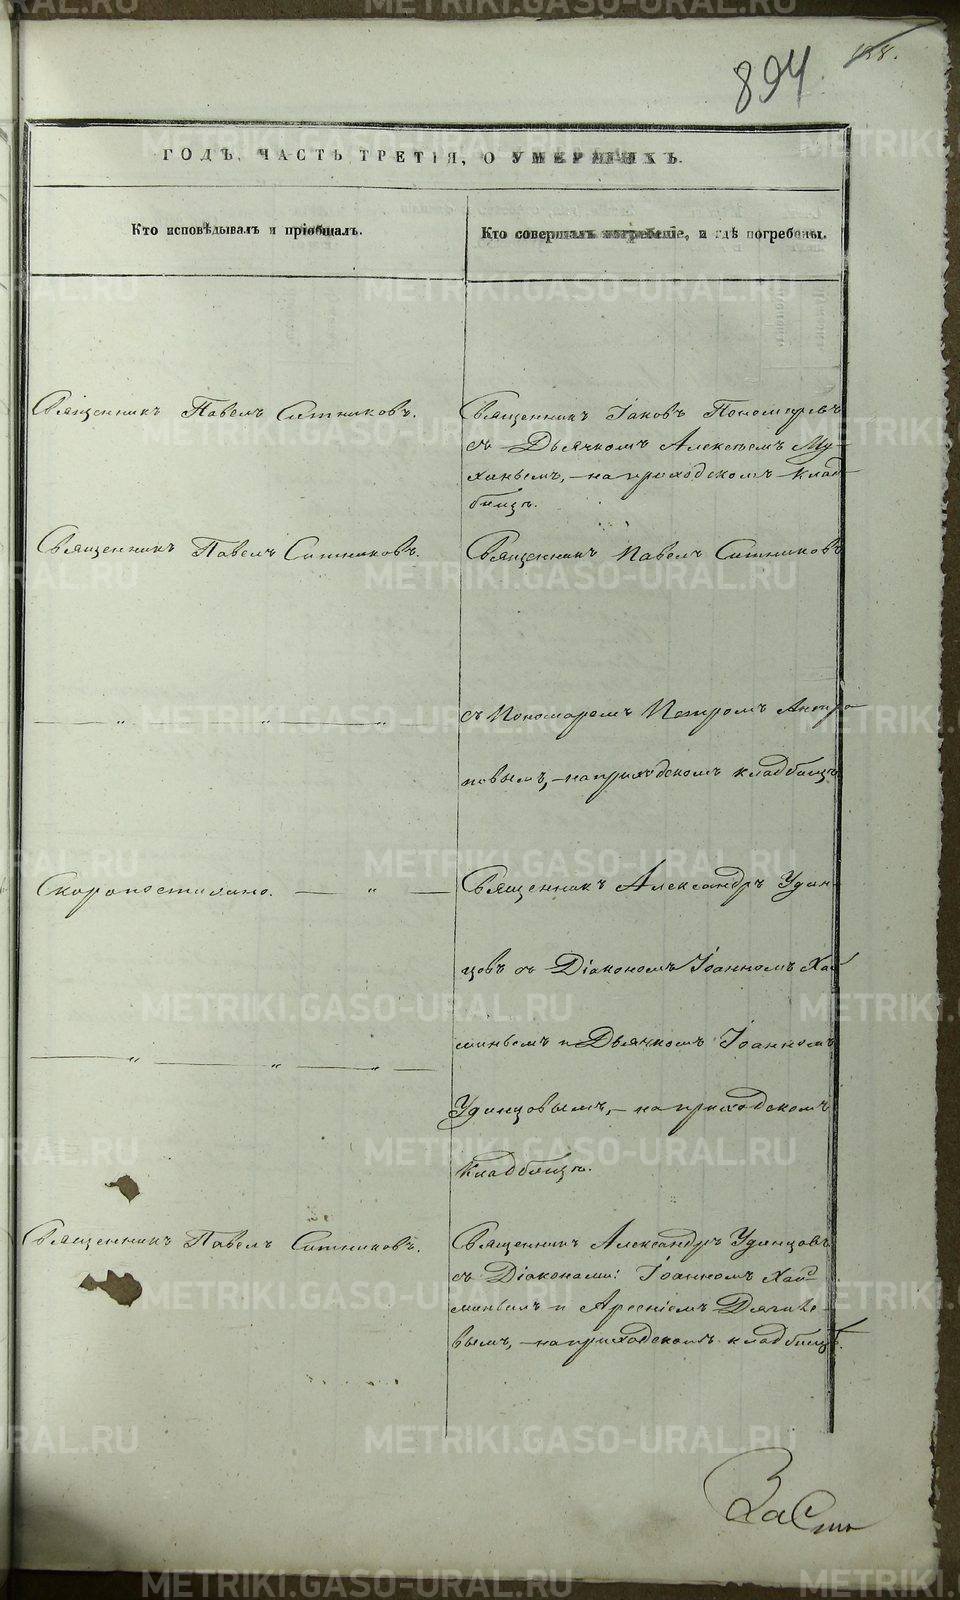 894
128.
ГОДЪ, ЧАСТЬ ТРЕТІЯ, О УМЕРШИХЪ.
Кто исповѣдывалъ и пріобщалъ.
Кто совершалъ погребеніе, и гдѣ погребены.
Священникъ Павелъ Ситниковъ.
Священникъ Іаковъ Пономаревъ
съ Дьячкомъ Алексѣемъ Му-
хинымъ, - на приходскомъ клад-
бищѣ.
Священникъ Павелъ Ситниковъ.
Священникъ Павелъ Ситниковъ
— „ — „ — „
съ Пономаремъ Петромъ Антро
повымъ, - на приходскомъ кладбищѣ
Скоропостижно. — „ —
Священникъ Александръ Удин-
цовъ съ Діакономъ Іоанномъ Хай
— „ — „ — „ —
минымъ и Дьячкомъ Іоанномъ
Удинцовымъ, - на приходскомъ
кладбищѣ.
Священникъ Павелъ Ситниковъ.
Священникъ Александръ Удинцовъ
съ Діаконами: Іоанномъ Хай
минымъ и Арсеніемъ
вымъ, - на приходскомъ кладбищѣ.
METRIKI.GASO-URAL.RU